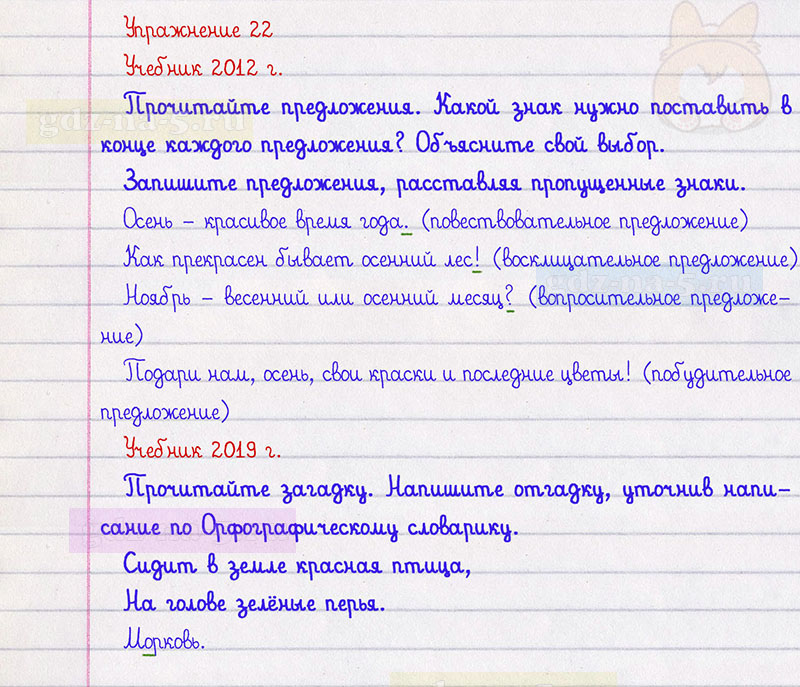 Упражнение 22
Учебник 2012 г.
Прочитайте предложения. Какой знак нужно поставить в
конце каждого предложения? Объясните свой выбор.
Запишите предложения, расставляя пропущенные знаки.
Осень – красивое время года. (повествовательное предложение)
Как прекрасен бывает осенний лес! (восклицательное предложение)
Ноябрь – весенний или осенний месяц? (вопросительное предложе-
ние)
Подари нам, осень, свои краски и последние цветы! (побудительное
предложение)
Учебник 2019 г.
Прочитайте загадку. Напишите отгадку, уточнив напи-
сание по Орфографическому словарику.
Сидит в земле красная птица,
На голове зелёные перья.
Морковь.
gdz-na-5.ru
gdz-na-5.ru